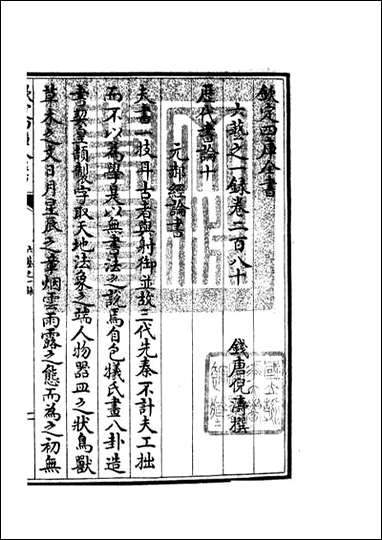 欽定四庫全書
六藝之一錄卷二百八十
錢唐倪濤撰
歷代書論十
元郝經論書
夫書一技耳古者與射御並故三代先秦不計夫工拙
而不以為學是以無書法之說焉自包犧氏畫八卦造
書契皇頡製字取天地法象之端人物器皿之狀鳥獸
草木之文日月星辰之章烟雲雨露之態而為之初無